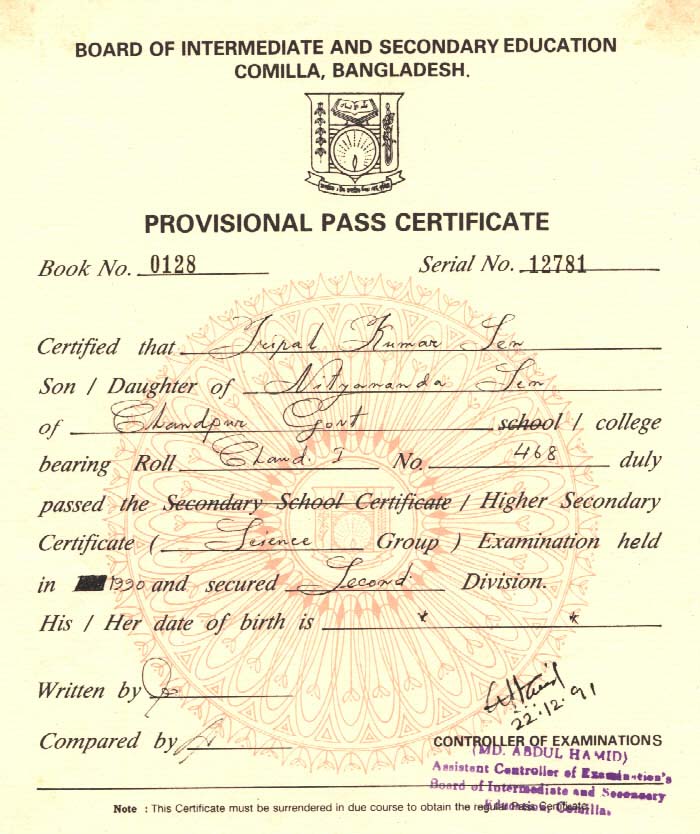 BOARD OF INTERMEDIATE AND SECONDARY EDUCATION
COMILLA, BANGLADESH.
PROVISIONAL PASS CERTIFICATE
Book No. 0128 Serial No. 12781
Certified that Tripal Kumar Sen
Son / Daughter of Nityananda Sen
of Chandpur Govt school / college
bearing Roll Chand. I No. 468 duly
passed the Secondary School Certificate / Higher Secondary
Certificate ( Science Group ) Examination held
in 1990 and secured Second. Division.
His / Her date of birth is * *
Written by
22.12.91
Compared by
CONTROLLER OF EXAMINATIONS
(MD. ABDUL HAMID)
Assistant Controller of Examination's
Board of Intermediate and Secondary
Education, Comilla.
Note : This Certificate must be surrendered in due course to obtain the regular Pass Certificate.